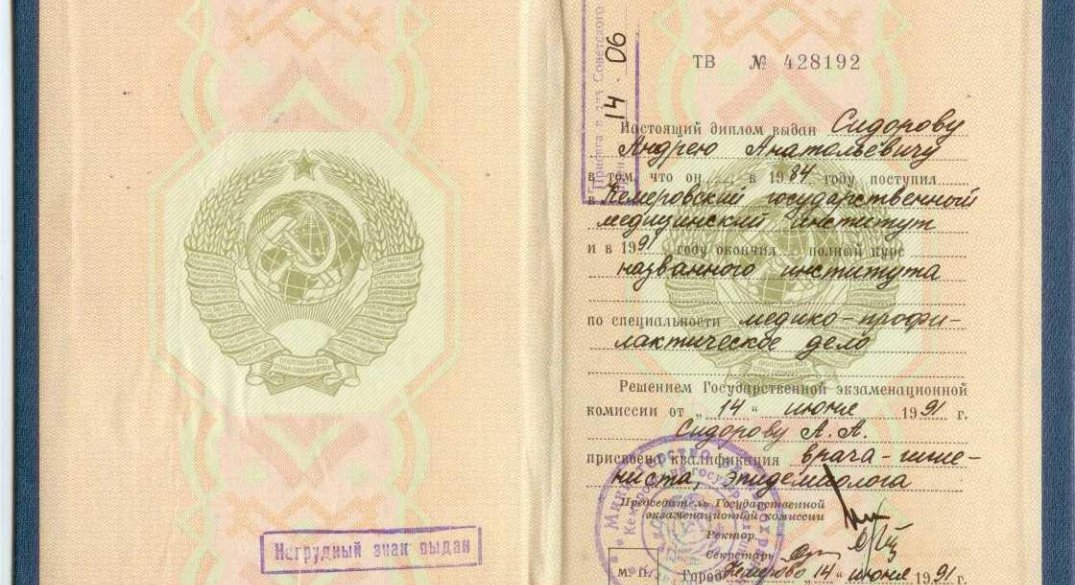 Нагрудный знак выдан
14 06
ТВ № 428192
Настоящий диплом выдан Сидорову
Андрею Анатольевичу
в том, что он в 1984 году поступил
в Кемеровский государственный
медицинский институт
и в 1991 году окончил полный курс
названного института
по специальности медико-профи-
лактическое дело
Решением Государственной экзаменационной
комиссии от „14“ июня 1991 г.
Сидорову А. А.
присвоена квалификация врача-гигие-
ниста, эпидемиолога
Председатель Государственной
экзаменационной комиссии
Ректор
Секретарь
М. П. Город Кемерово 14 „ июня 1991.